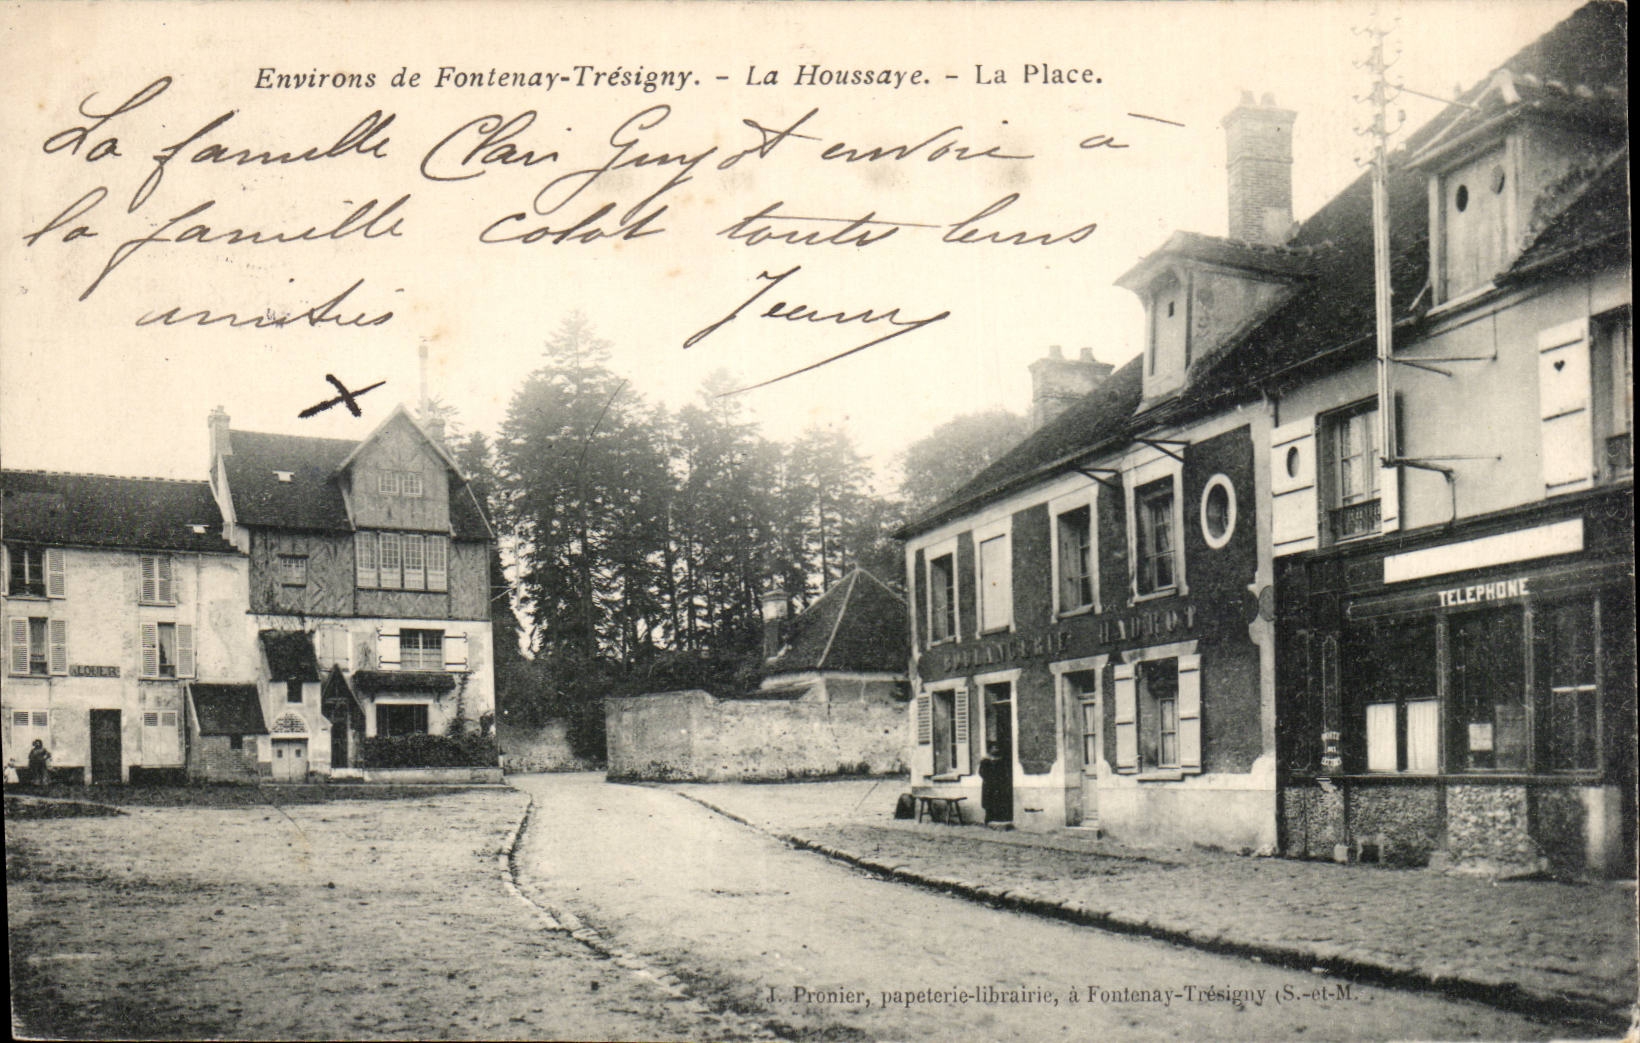 Environs de Fontenay-Trésigny. - La Houssaye. - La Place.
La famille Clair Guyot envoie à
la famille Colot toutes leurs
amitiés Jeanny
A LOUER
BOULANGERIE HADROT
TELEPHONE
J. Pronier, papeterie-librairie, à Fontenay-Trésigny (S.-et-M.